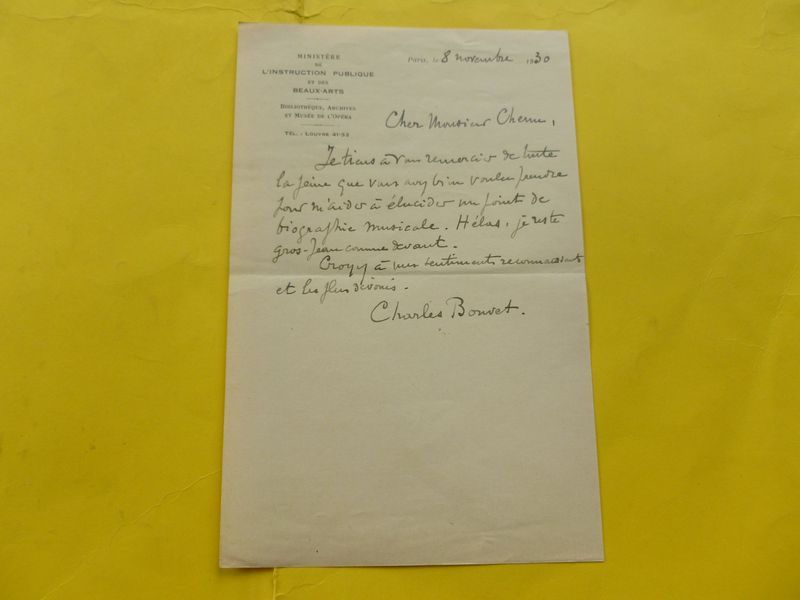 MINISTÈRE
DE
L'INSTRUCTION PUBLIQUE
ET DES
BEAUX-ARTS
BIBLIOTHÈQUE, ARCHIVES
ET MUSÉE DE L'OPÉRA
TÉL. : LOUVRE 41-53
Paris, le 8 novembre 1930
Cher Monsieur
Je tiens à vous remercier de toute
la peine que vous avez bien voulu prendre
pour m'aider à élucider un point de
biographie musicale. Hélas, je reste
gros-Jean comme devant.
Croyez à mes sentiments reconnaissants
et les plus dévoués.
Charles Bouvet.